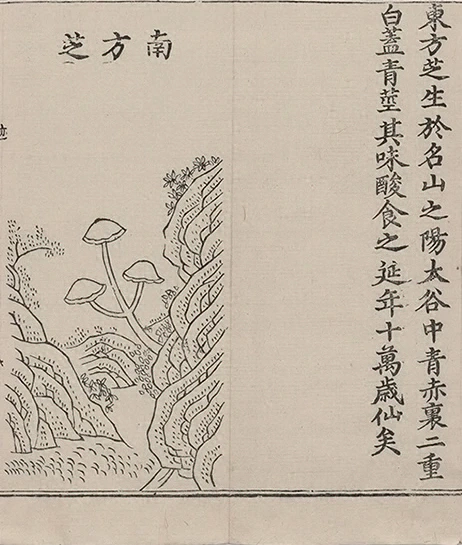 東方芝生於名山之陽太谷中青赤裏二重
白蓋青莖其味酸食之延年十萬歲仙矣
南方芝